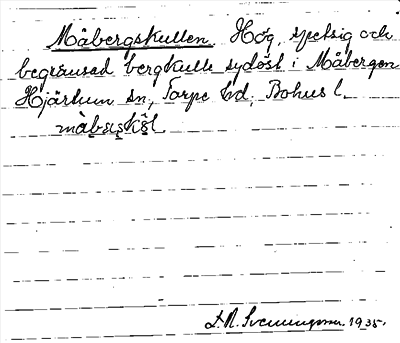 Måbergskullen. Hög, spetsig och
begränsad bergkulle sydöst i Måbergen
Hjärtum sn, Torpe hd, Bohus l.
måbæsköl
D. A. Svenningsson 1935.